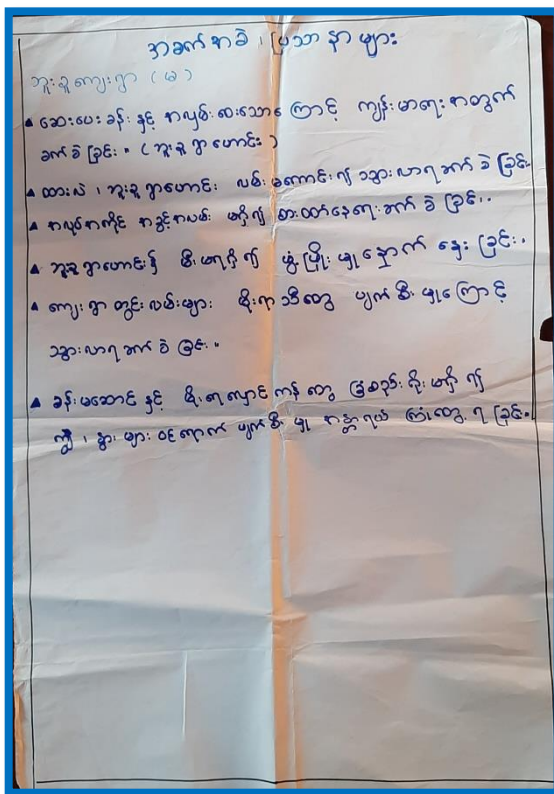 အခက်အခဲ ၊ ပြဿနာများ
ဘူးခူကျေးရွာ ( မ )
▲ ဆေးပေးခန်း နှင့် အလှမ်းဝေးသောကြောင့် ကျန်းမာရေးအတွက်
ခက်ခဲခြင်း ။ ( ဘူးခူရွာဟောင်း )
▲ ထားလဲ ၊ ဘူးခူရွာဟောင်း လမ်းမကောင်း၍ သွားလာရခက်ခဲခြင်း
▲ အလုပ်အကိုင် အခွင့်အလမ်း မရှိ၍ စားဝတ်နေရေးခက်ခဲခြင်း ။
▲ ဘူးခူရွာဟောင်း၌ မီးမရှိ၍ ဖွံ့ဖြိုးမှုနှောက်နှေးခြင်း ။
▲ ကျေးရွာတွင်းလမ်းများ မိုးရာသီတွေ ပျက်စီးမှုကြောင့်
သွားလာရခက်ခဲခြင်း ။
▲ ခန်းမဆောင် နှင့် မိုးရေလှောင်ကန်တွေ ခြံစည်းရိုးမရှိ၍
ကျွဲ ၊ နွားများ ဝင်ရောက်ဖျက်စီးမှု အန္တရာယ် ကြုံတွေ့ရခြင်း ။